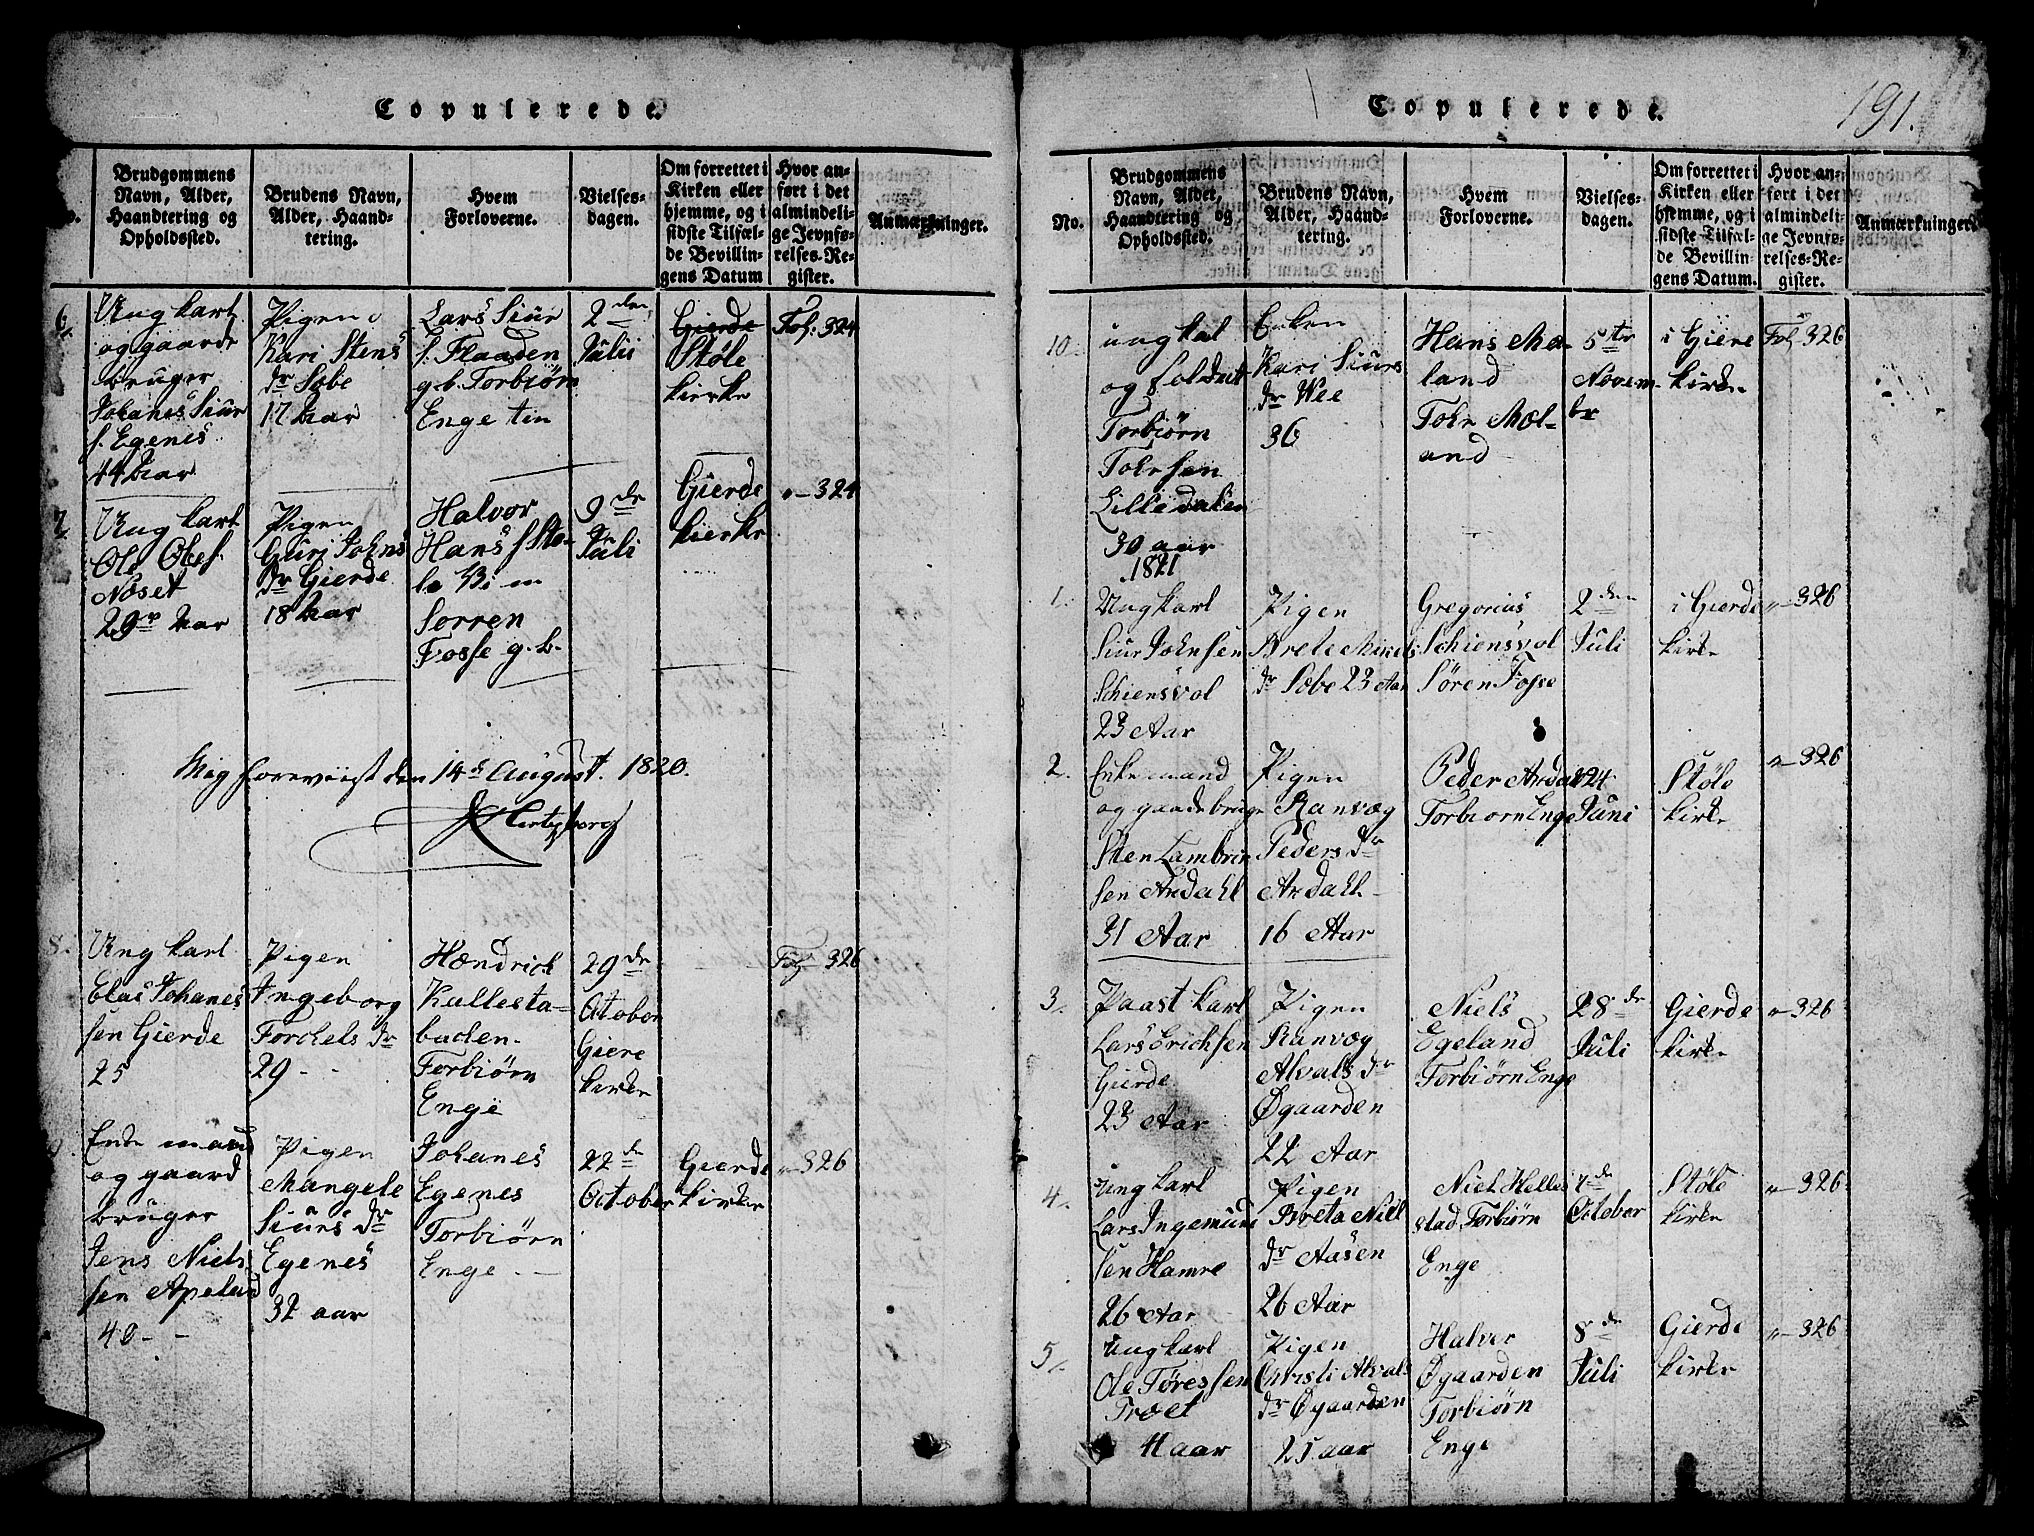 Copulerede.
No.
Brudgommens
Navn, Alder,
Haandtering og
Opholdssted.
Brudens Navn,
Alder, Haand-
tering.
Hvem
Forloverne.
Vielses-
dagen.
Om forrettet i
Kirken eller
hjemme, og i
sidste Tilfæl-
de Bevillin-
gens Datum
Hvor an-
ført i det
almindeli-
ge Jevnfø-
relses-Re-
gister.
Anmærkninger.
6
Ung karl
og gaard
bruger
Johanes Siur
s. Egenes
44 Aar
Pigen
Kari Stens
dr Sobe
17 Aar
Lars Siur
s. Flaaden
g.b. Torbiørn
Enge tin
2den
Julii
Gierde
Støle
kierke
Fol. 324
7
Ung karl
Ole Olses.
Noset
29 Aar
Pigen
Guri Johns
dr Gierde
18 Aar
Halvor
Hans s Sto-
le
Sorren
Fosse g.b.
9de
Juli
Gierde
kierke
" 324
Mig foreviist den 14de August. 1820.
Hertzberg
8.
Ung karl
Elas Johanes
sen Gierde
25
Pigen
Ingeborg
Torckels dr
29 - -
Hændrick
Kallesta-
baden.
Torbiørn
Enge
29de
October
Giere
kirke
Fol 326
9.
Enke mand
og gaard
bruger
Jens Niels
sen Apeland
40 - -
Pigen
Mangele
Siurs dr
Egenes
32 aar
Johanes
Egenes
Torbiørn
Enge - -
22de
October
Gierde
kirke
" 326
Copulerede.
191.
No.
Brudgommens
Navn, Alder,
Haandtering og
Opholdssted.
Brudens Navn,
Alder, Haand-
tering.
Hvem
Forloverne.
Vielses-
dagen.
Om forrettet i
Kirken eller
hjemme, og i
sidste Tilfæl-
de Bevillin-
gens Datum.
Hvor an-
ført i det
almindeli-
ge Jevnfø-
relses-Re-
gister.
Anmærkninger.
10.
ung kal
og soldat
Torbiørn
Tolesen
Lilledalen
30 aar
Enken
Kari Siurs
dr Wee
36
Hans Mæ-
land
Tole Mæl-
and
5te
Novem-
br
i Giere
kirke
Fol 326
1821
1.
Ungkarl
Siur Johnsen
Schiensvol
23 Aar
Pigen
Brete
dr Sobe 23 Aar
Gregorius
Schiensvol
Søren Fosse
2den
Juli
i Gierde
kirke
" 326
2.
Enkemand
og gaadebruge
Sten Lambrin
sen Ardahl
31 Aar
Pigen
Ranvæg
Peders dr
Ardahl
16 Aar
Peder Ardal
Torbiorn Enge
24
Juni
Støle
kirke
" 326
3.
Paast karl
Lars Erichsen
Gierde
23 Aar
Pigen
Ranvæg
Alvals dr
Øgaarden
22 Aar
Niels
Egeland
Torbiørn Enge
28de
Juli
Gierde
kirke
" 326
4.
Ung karl
Lars Ingemun
sen Hamre
26 Aar
Pigen
Breta Niel
dr Aasen
26 Aar
Niel Helles
stad, Torbiørn
Enge
7de
October
Støle
kirke
" 326
5.
Ungkarl
Ole Tøressen
Træet
41 aar
Pigen
Christi Alvals
dr Øgaarden
25 aar
Halver
Øgaarden
Torbiørn
Enge
8de
Juli
Gierde
kirke
" 326